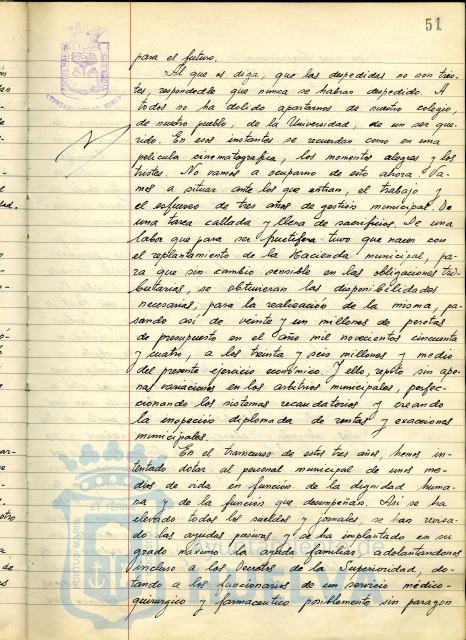 51
para el futuro.
Al que os diga, que las despedidas no son tris-
tes, respondedle que nunca se habran despedido. A
todos no ha dolido apartarnos de nuestro colegio,
de nuestro pueblo, de la Universidad de un ser que-
rido. En esos instantes se recuerdan como en una
pelicula cinematografica, los momentos alegres y los
tristes. No vamos a ocuparno de esto ahora. Va-
mos a situar ante los que entran, el trabajo y
el esfuerzo de tres años de gestión municipal. De
una tarea callada y llena de sacrificios. De una
labor que para ser fructifera tuvo que nacer con
el replantamiento de la Hacienda municipal, pa-
ra que sin cambio sensible en las obligaciones tri-
butarias, se obtuvieran las disponibilidades
necesarias, para la realización de la misma, pa-
sando asi de veinte y un millones de pesetas
de presupuesto en el año mil novecientos cincuenta
y cuatro, a los treinta y seis millones y medio
del presente ejercicio económico. Y ello, repito sin ape-
nas variaciones en los arbitrios municipales, perfec-
cionando los sistemas recaudatorios y creando
la inspección diplomada de rentas y exacciones
municipales.
En el transcurso de estos tres años, hemos in-
tentado dotar al personal municipal de unos me-
dios de vida en función de la dignidad huma-
na y de la función que desempeñan. Asi se ha
elevado todos los sueldos y jornales, se han revisa-
do las ayudas pasivas y se ha implantado en su
grado máximo la ayuda familiar, adelantandonos
incluso a los Decretos de la Superioridad, do-
tando a los funcionarios de un servicio médico-
quirurgico y farmaceutico posiblemente sin paragon